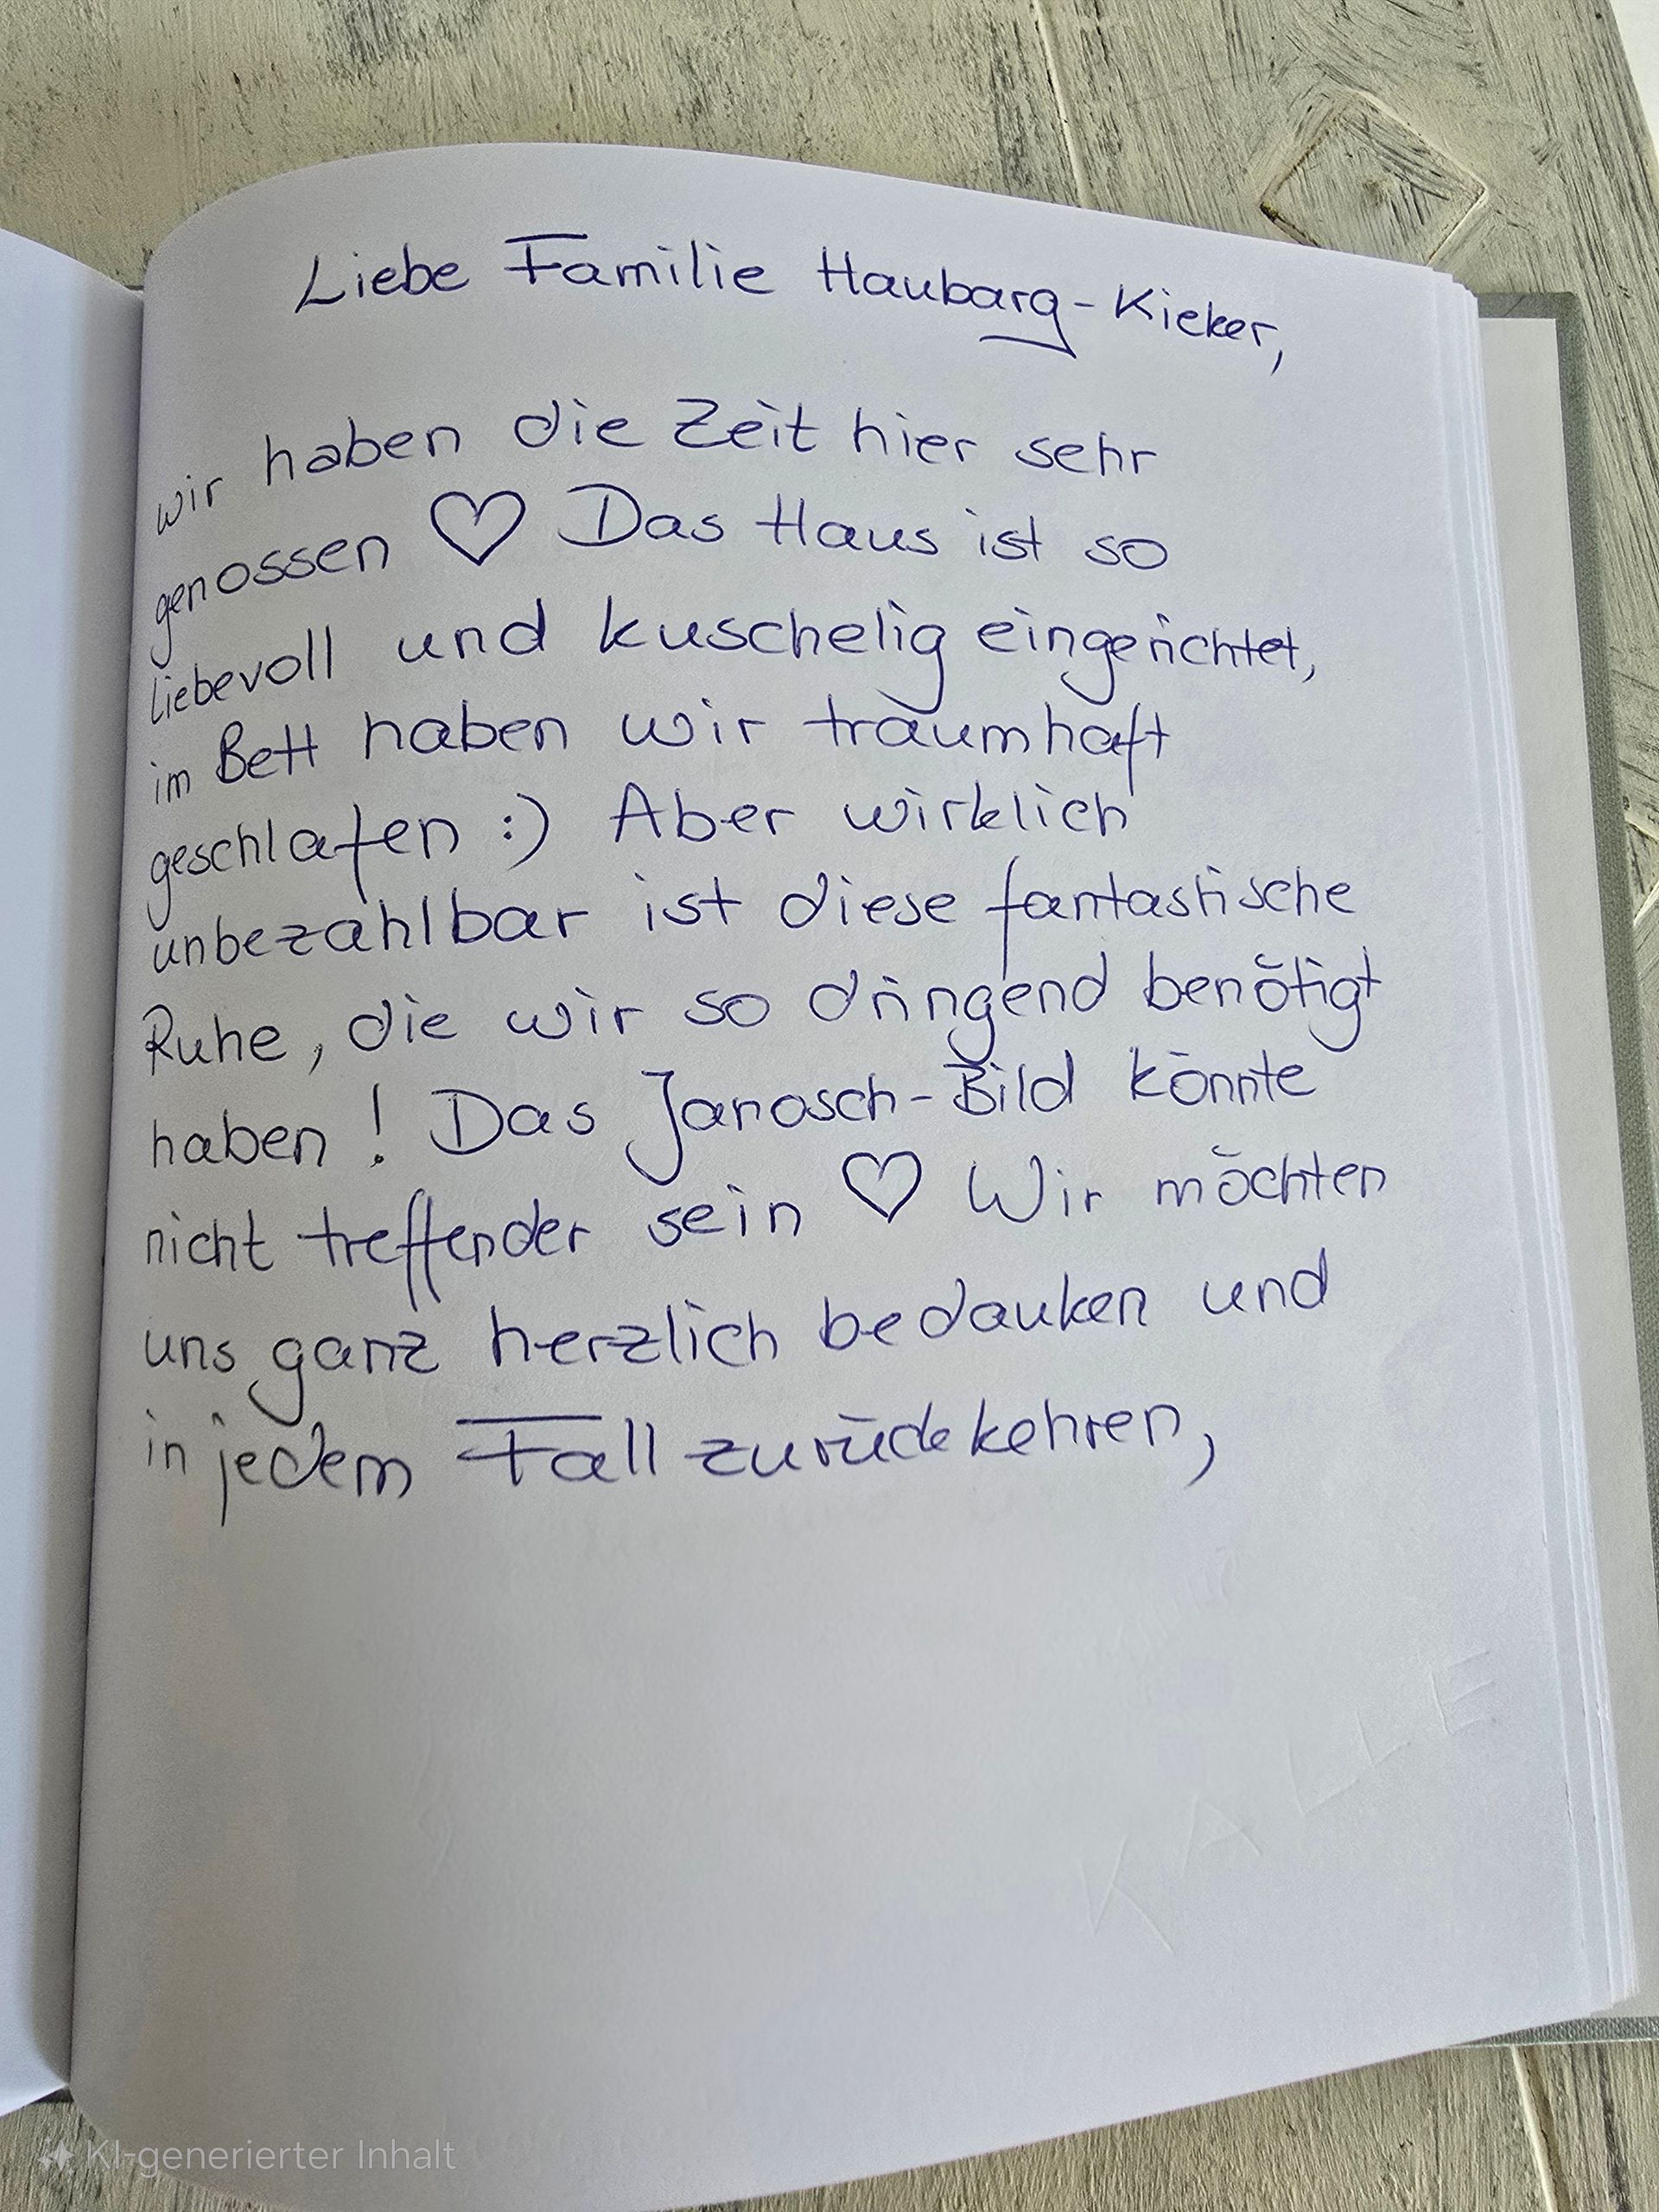 Liebe Familie Haubarg-Kieker,
wir haben die Zeit hier sehr
genossen ♡ Das Haus ist so
liebevoll und kuschelig eingerichtet,
im Bett haben wir traumhaft
geschlafen :) Aber wirklich
unbezahlbar ist diese fantastische
Ruhe, die wir so dringend benötigt
haben! Das Janosch-Bild könnte
nicht treffender sein ♡ Wir möchten
uns ganz herzlich bedauken und
in jedem Fall zurückkehren,
KALLE
KI-generierter Inhalt